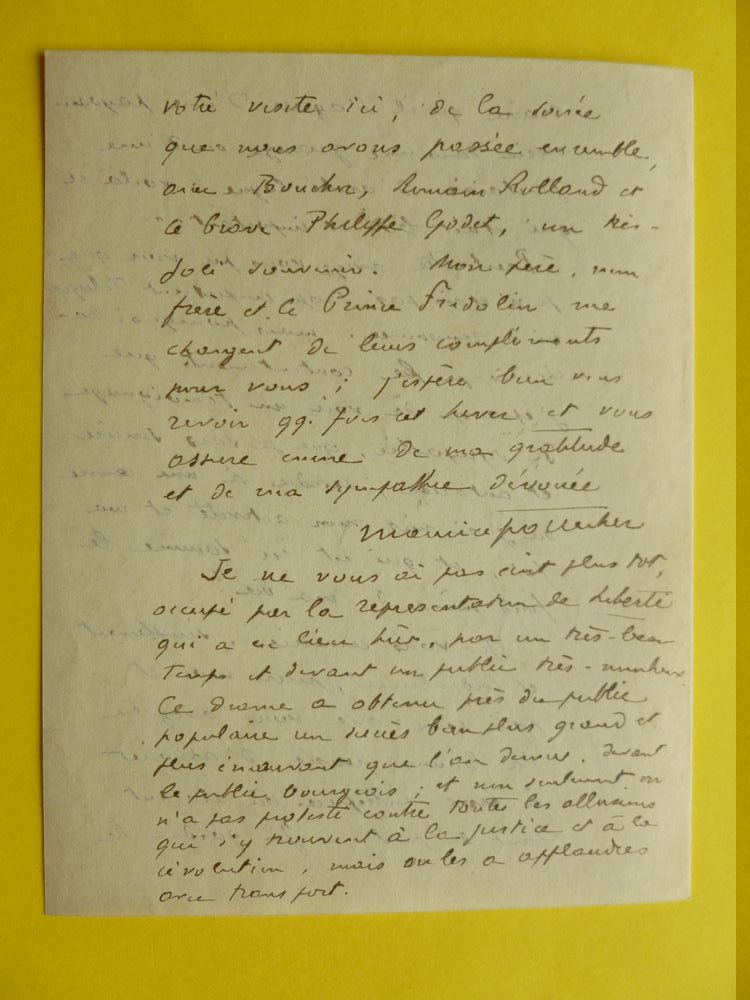 votre visite ici, de la soirée
que nous avons passée ensemble,
avec Bouchor, Romain Rolland et
le brave Philippe Godet, un très-
joli souvenir. Mon père, mon
frère et le Prince Fridolin me
chargent de leurs compliments
pour vous ; j'espère bien vous
revoir qq. fois cet hiver, et vous
assure encore de ma gratitude
et de ma sympathie dévouée
Maurice Pottecher
Je ne vous ai pas écrit plus tôt,
occupé par la représentation de Liberté
qui a eu lieu hier, par un très-beau
temps et devant un public très-nombreux.
Ce drame a obtenu près du public
populaire un succès bien plus grand et
plus émouvant que l'an dernier, devant
le public bourgeois ; et non seulement on
n'a pas protesté contre toutes les allusions
qui s'y trouvent à la justice et à la
révolution, mais on les a applaudies
avec transport.